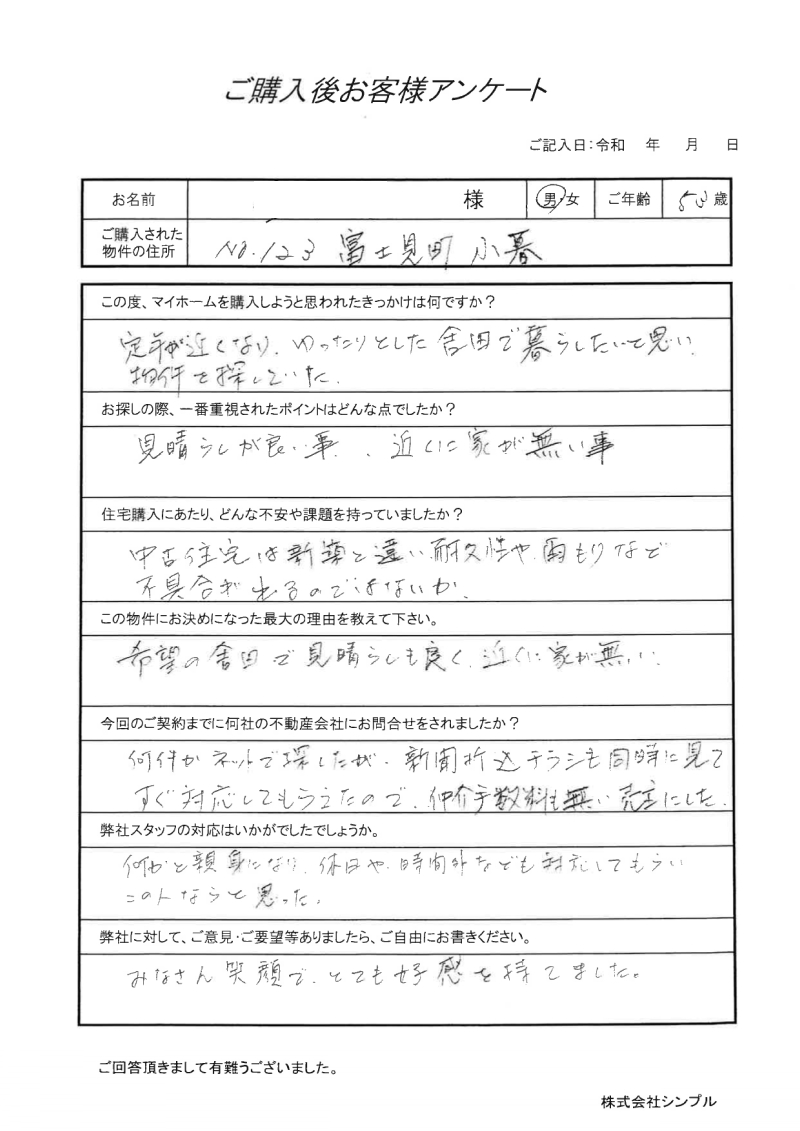 ご購入後お客様アンケート
ご記入日：令和　年　月　日
お名前　様　男　女　ご年齢　53歳
ご購入された
物件の住所　No.123 富士見町 小暮
この度、マイホームを購入しようと思われたきっかけは何ですか？
定年が近くなり、ゆったりとした舎田で暮らしたいと思い、
物件を探していた。
お探しの際、一番重視されたポイントはどんな点でしたか？
見晴らしが良い事、近くに家が無い事
住宅購入にあたり、どんな不安や課題を持っていましたか？
中古住宅は新築と違い、耐久性や、雨もりなど
不具合が出るのではないか。
この物件にお決めになった最大の理由を教えて下さい。
希望の舎田で見晴らしも良く、近くに家が無い、
今回のご契約までに何社の不動産会社にお問合せをされましたか？
何件かネットで探したが、新聞折込チラシも同時に見て
すぐ対応してもらえたので、仲介手数料も無い売主にした。
弊社スタッフの対応はいかがでしたでしょうか。
何かと親身になり、休日や、時間外なども対応してもらい
この人ならと思った。
弊社に対して、ご意見・ご要望等ありましたら、ご自由にお書きください。
みなさん笑顔で、とても好感を持てました。
ご回答頂きまして有難うございました。
株式会社シンプル